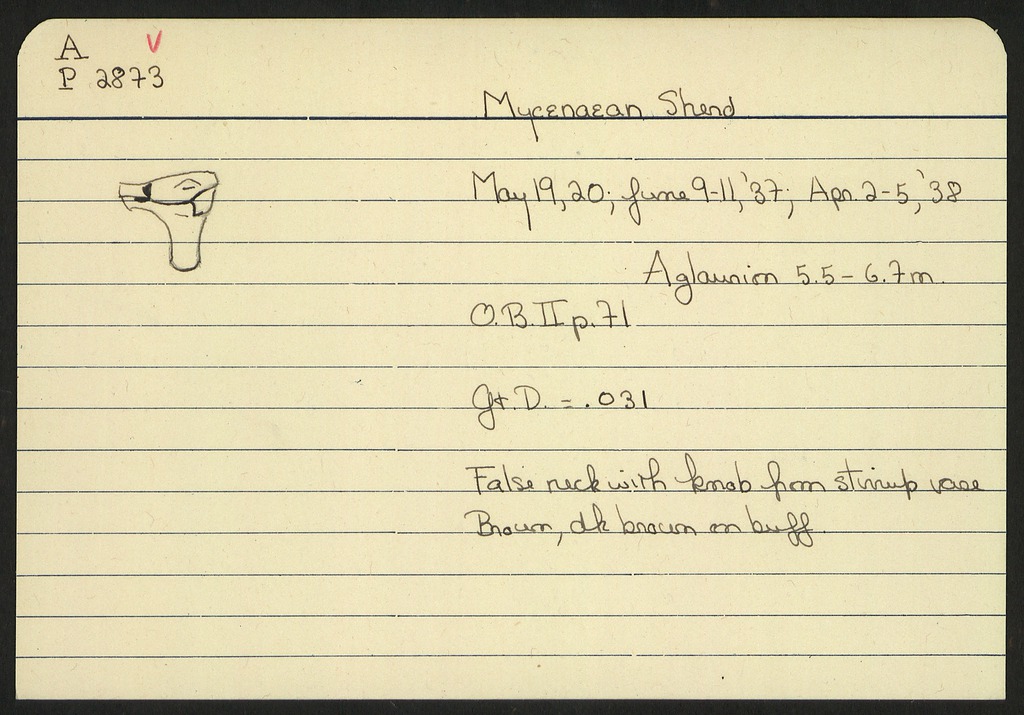 A V
P 2873
Mycenaean Sherd
May 19, 20; June 9-11, '37; Apr. 2-5, '38
Aglaurion 5.5 - 6.7 m.
O.B. II p. 71
Gt. D. = .031
False neck with knob from stirrup vase
Brown, dk brown on buff.